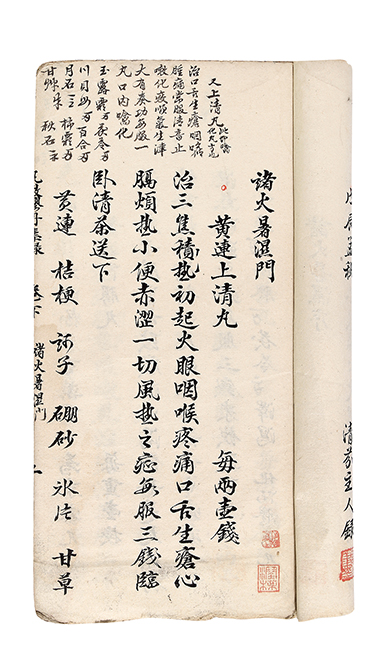 清於主人録
諸火暑濕門
黄連上清丸 每兩壹錢
治三焦積熱初起火眼咽喉疼痛口舌生瘡心
膈煩热小便赤澀一切風热之症每服三錢臨
臥清茶送下
黄連 桔梗 訶子 硼砂 氷片 甘草
又上清丸
治口舌生瘡咽喉
腫痛常服清音止
嗽化痰順氣生津
大有奏功每服一
丸口内噙化
玉露霜
月石 柿霜
甘草 秋石
諸火暑濕門 上